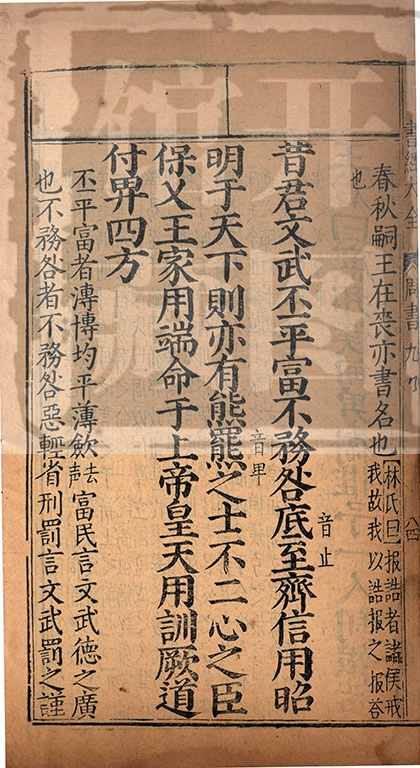 春秋嗣王在喪亦書名也
林氏曰報誥者諸侯戒
我故我以誥報之報荅
也
昔君文武丕平富不務咎底至齊信用昭
音止
明于天下則亦有熊羆之士不二心之臣
音畢
保乂王家用端命于上帝皇天用訓厥道
付畀四方
丕平富者溥博均平薄歛去声富民言文武德之廣
也不務咎者不務咎惡輕省刑罰言文武罰之謹